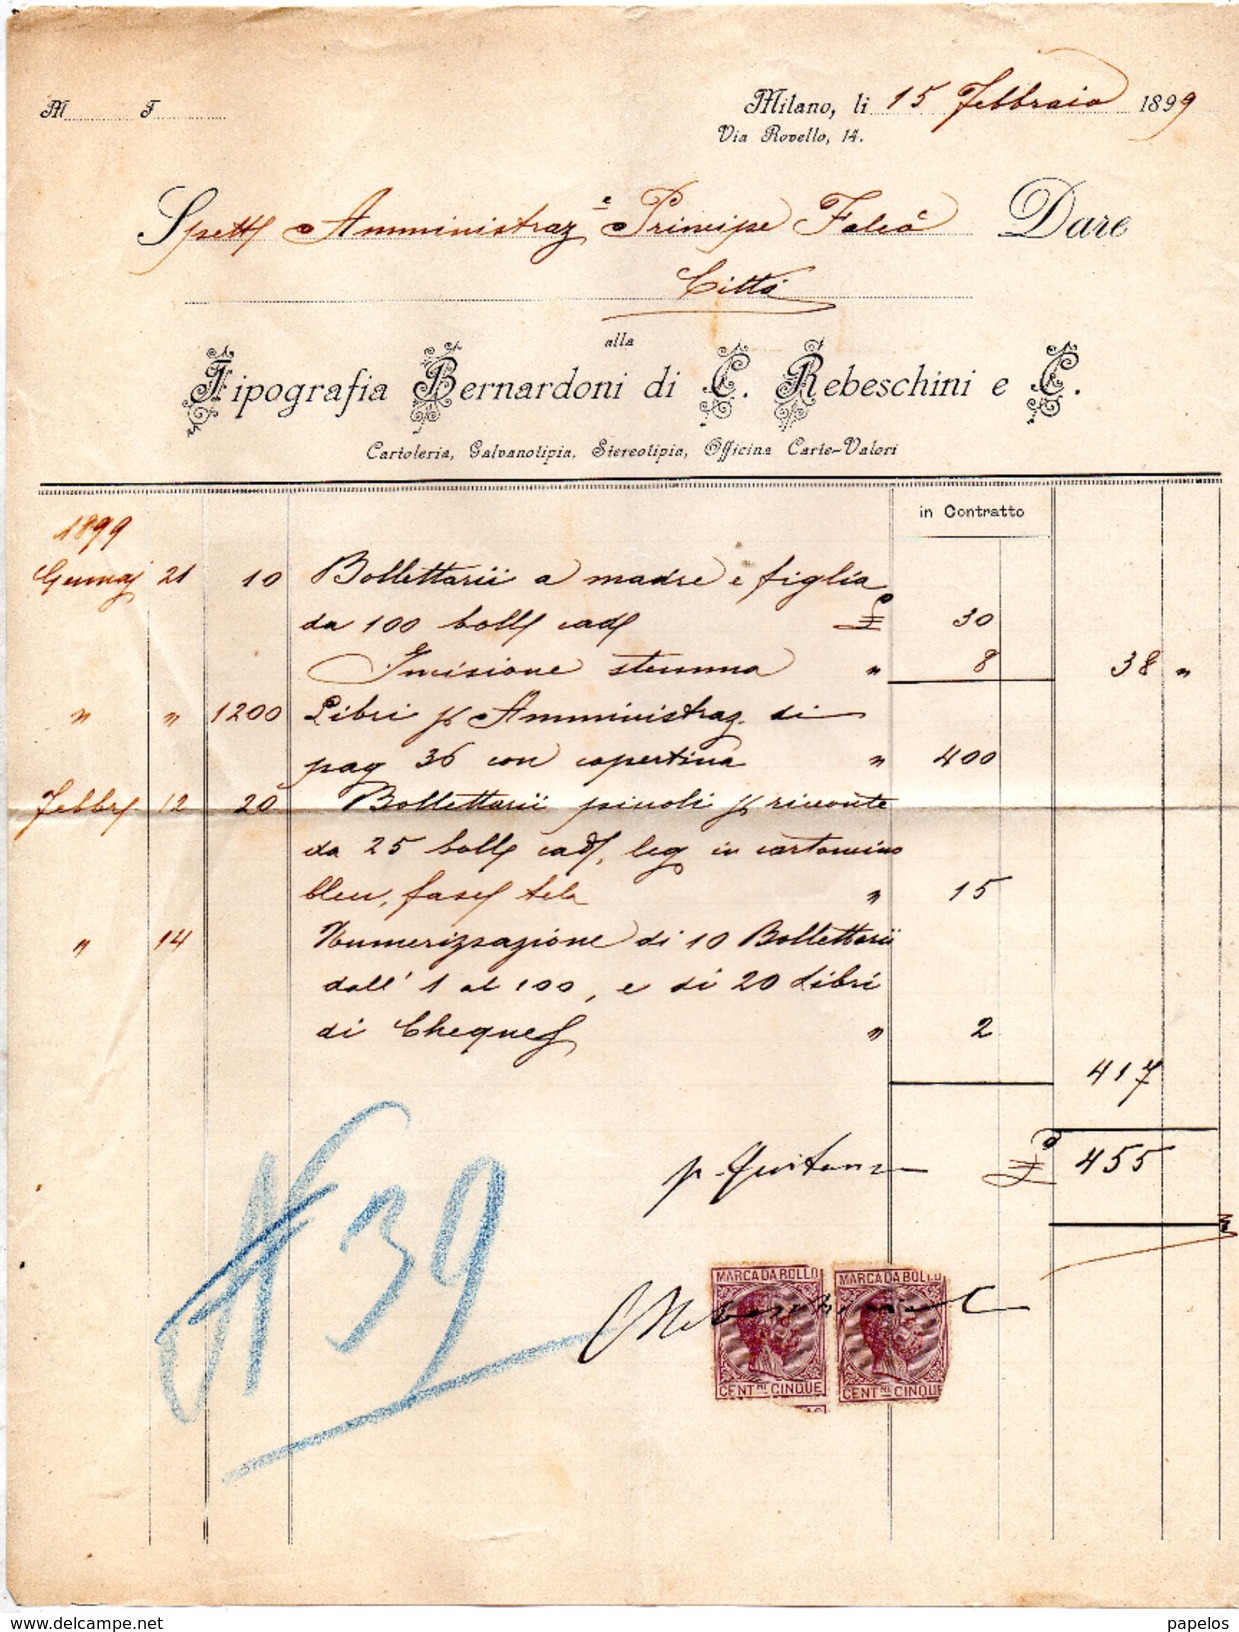 M T
Milano, li 15 Febbraio 1899
Via Rovello, 14.
Spett Amministraz.e Principe Falcò Dare
Città
alla
Tipografia Bernardoni di C. Rebeschini e C.
Cartoleria, Galvanotipia, Stereotipia, Officina Carte-Valori
in Contratto
1899
21 10 Bollettarii a madre e figlia
da 100 boll cad £ 30
Incisione stemma " 8 38 "
" " 1200 Libri p Amministraz. di
pag 36 con copertina " 400
Febbr 12 20 Bollettarii piccoli p
da 25 boll cad, leg in cartoncino
bleu, tela " 15
" 14 Numerizzazione di 10 Bollettarii
dall' 1 al 100, e di 20 Libri
di Cheques " 2
417
p. Quitanza £ 455
MARCA DA BOLLO MARCA DA BOLLO
Rebeschini e C
CENT.MI CINQUE CENT.MI CINQUE
N 39
www.delcampe.net
papelos